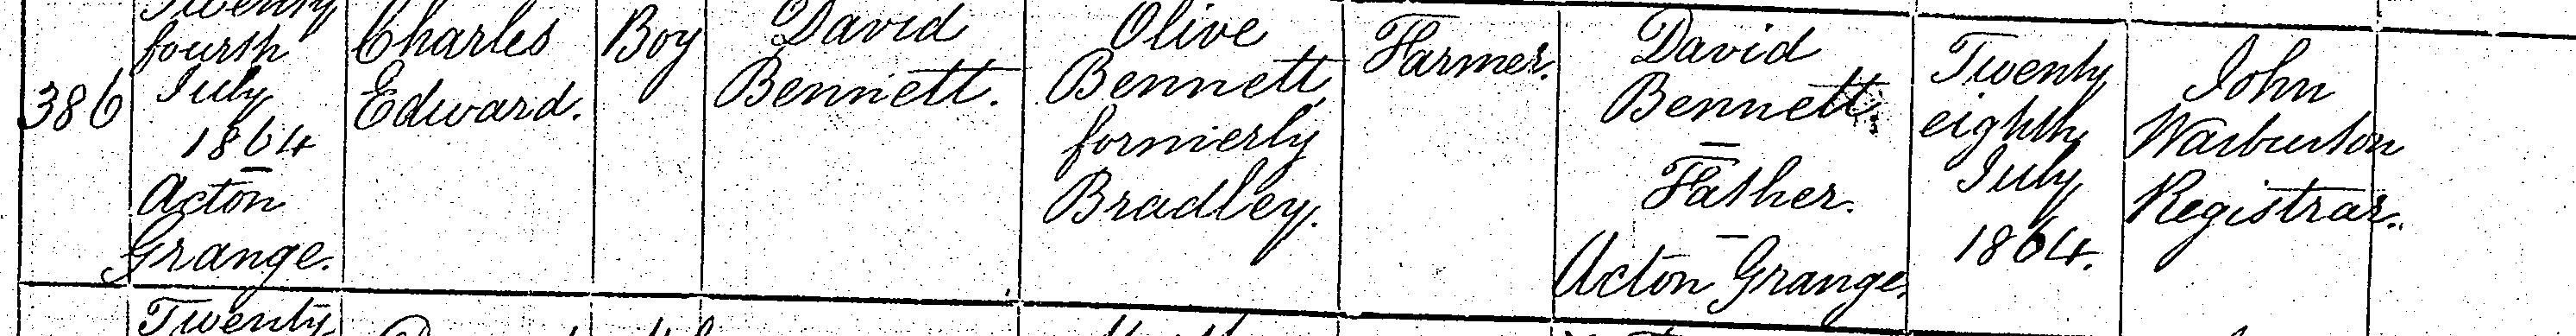 386
Twenty
fourth
July
1864
Acton
Grange.
Charles
Edward.
Boy
David
Bennett.
Olive
Bennett
formerly
Bradley.
Farmer.
David
Bennett.
Father.
Acton Grange.
Twenty
eighth
July
1864.
John
Warburton
Registrar.
Twenty